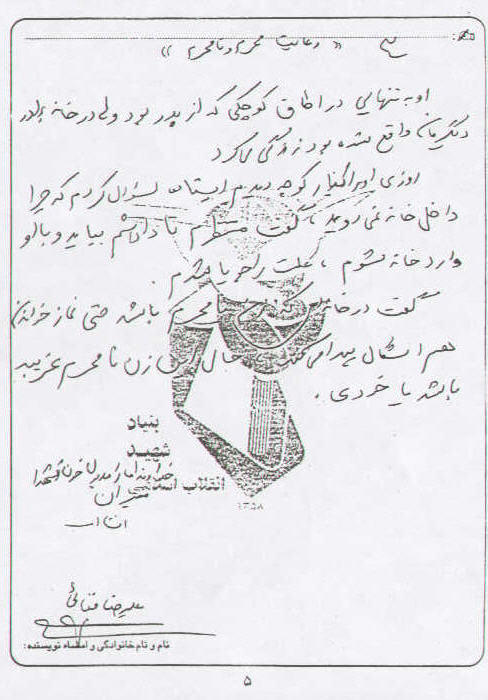 ۳ «رعایت محرم و نامحرم»
او به تنهایی در اطاق کوچکی که از پدر بود ولی در خانه برادر
دیگرمان واقع شده بود زندگی می‌کرد
روزی او را کنار کوچه دیدم ایستاده سؤال کردم که چرا
داخل خانه نمی‌روید، گفت منتظرم تا داداشم بیاید و با او
وارد خانه شوم، علت را جویا شدم.
گفت در خانه‌ای که زن نامحرم باشد حتی نماز خواندن
هم اشکال پیدا می‌کند حال این زن نامحرم غریبه
باشد یا خودی.
بنیاد
شهید
انقلاب اسلامی
۱۳۵۸
علیرضا
نام و نام خانوادگی و امضاء نویسنده:
۵